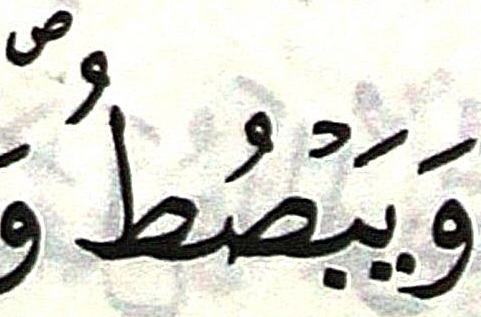 وَيَبْصُۜطُ ۖ وَ